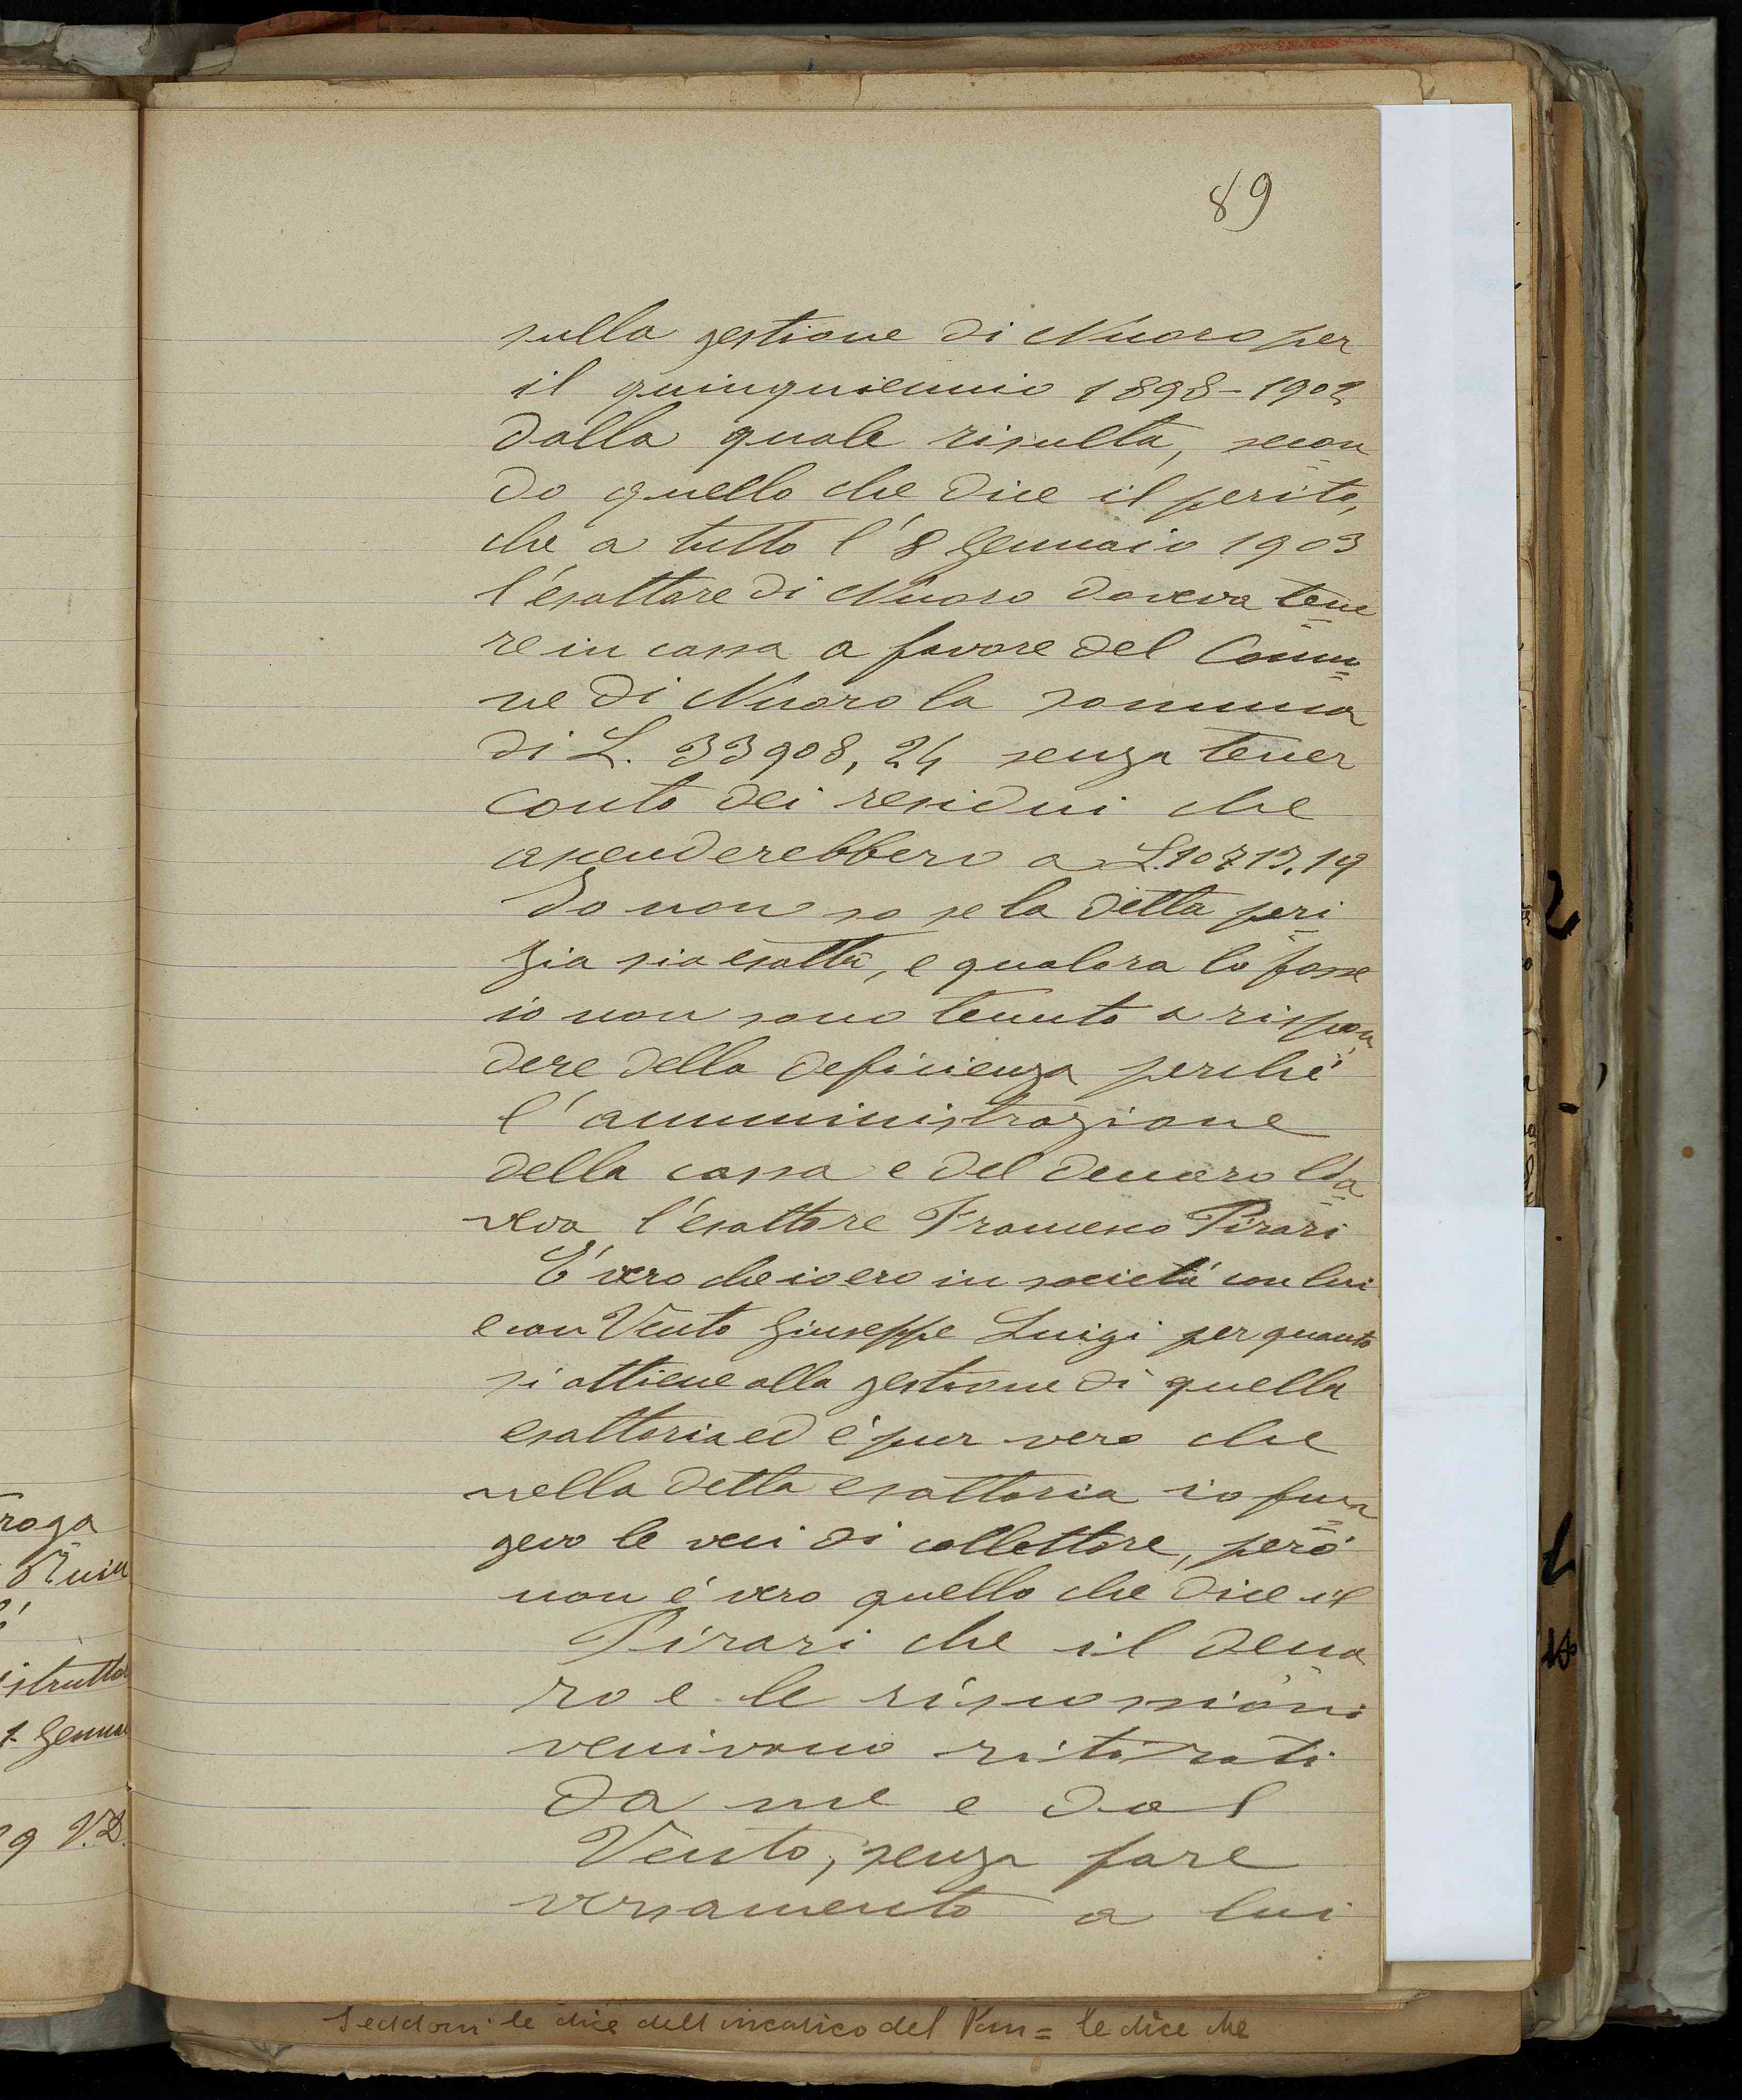 89
sulla gestione di Nuoro per
il quinquiennio 1898-1902
dalla quale risulta, secon
do quello che dice il perito,
che a tutto l'8 Gennaio 1903
l'esattore di Nuoro doveva tene
re in cassa a favore del Comu
ne di Nuoro la somma
di L. 33908,24 senza tener
conto dei residui che
ascenderebbero a L.10713,19
Io non so se la detta peri
zia sia esatta, e qualora lo fosse
io non sono tenuto a rispon
dere della deficienza perché
l'amministrazione
della cassa e del denaro l'a
veva l'esattore Francesco Pirari
E' vero che io ero in societá con lui
e con Vento Giuseppe Luigi per quanto
si attiene alla gestione di quella
esattoria ed é pur vero che
nella detta esattoria io fun
gevo le veci di collettore, peró
non é vero quello che dice il
Pirari che il dena
ro e le riscossioni
venivano ritirati
da me e dal
Vento, senza fare
versamento a lui
roga
istrutto
1 Genna
9 V.D.
Seddoni le dice dell'incarico del = le dice che